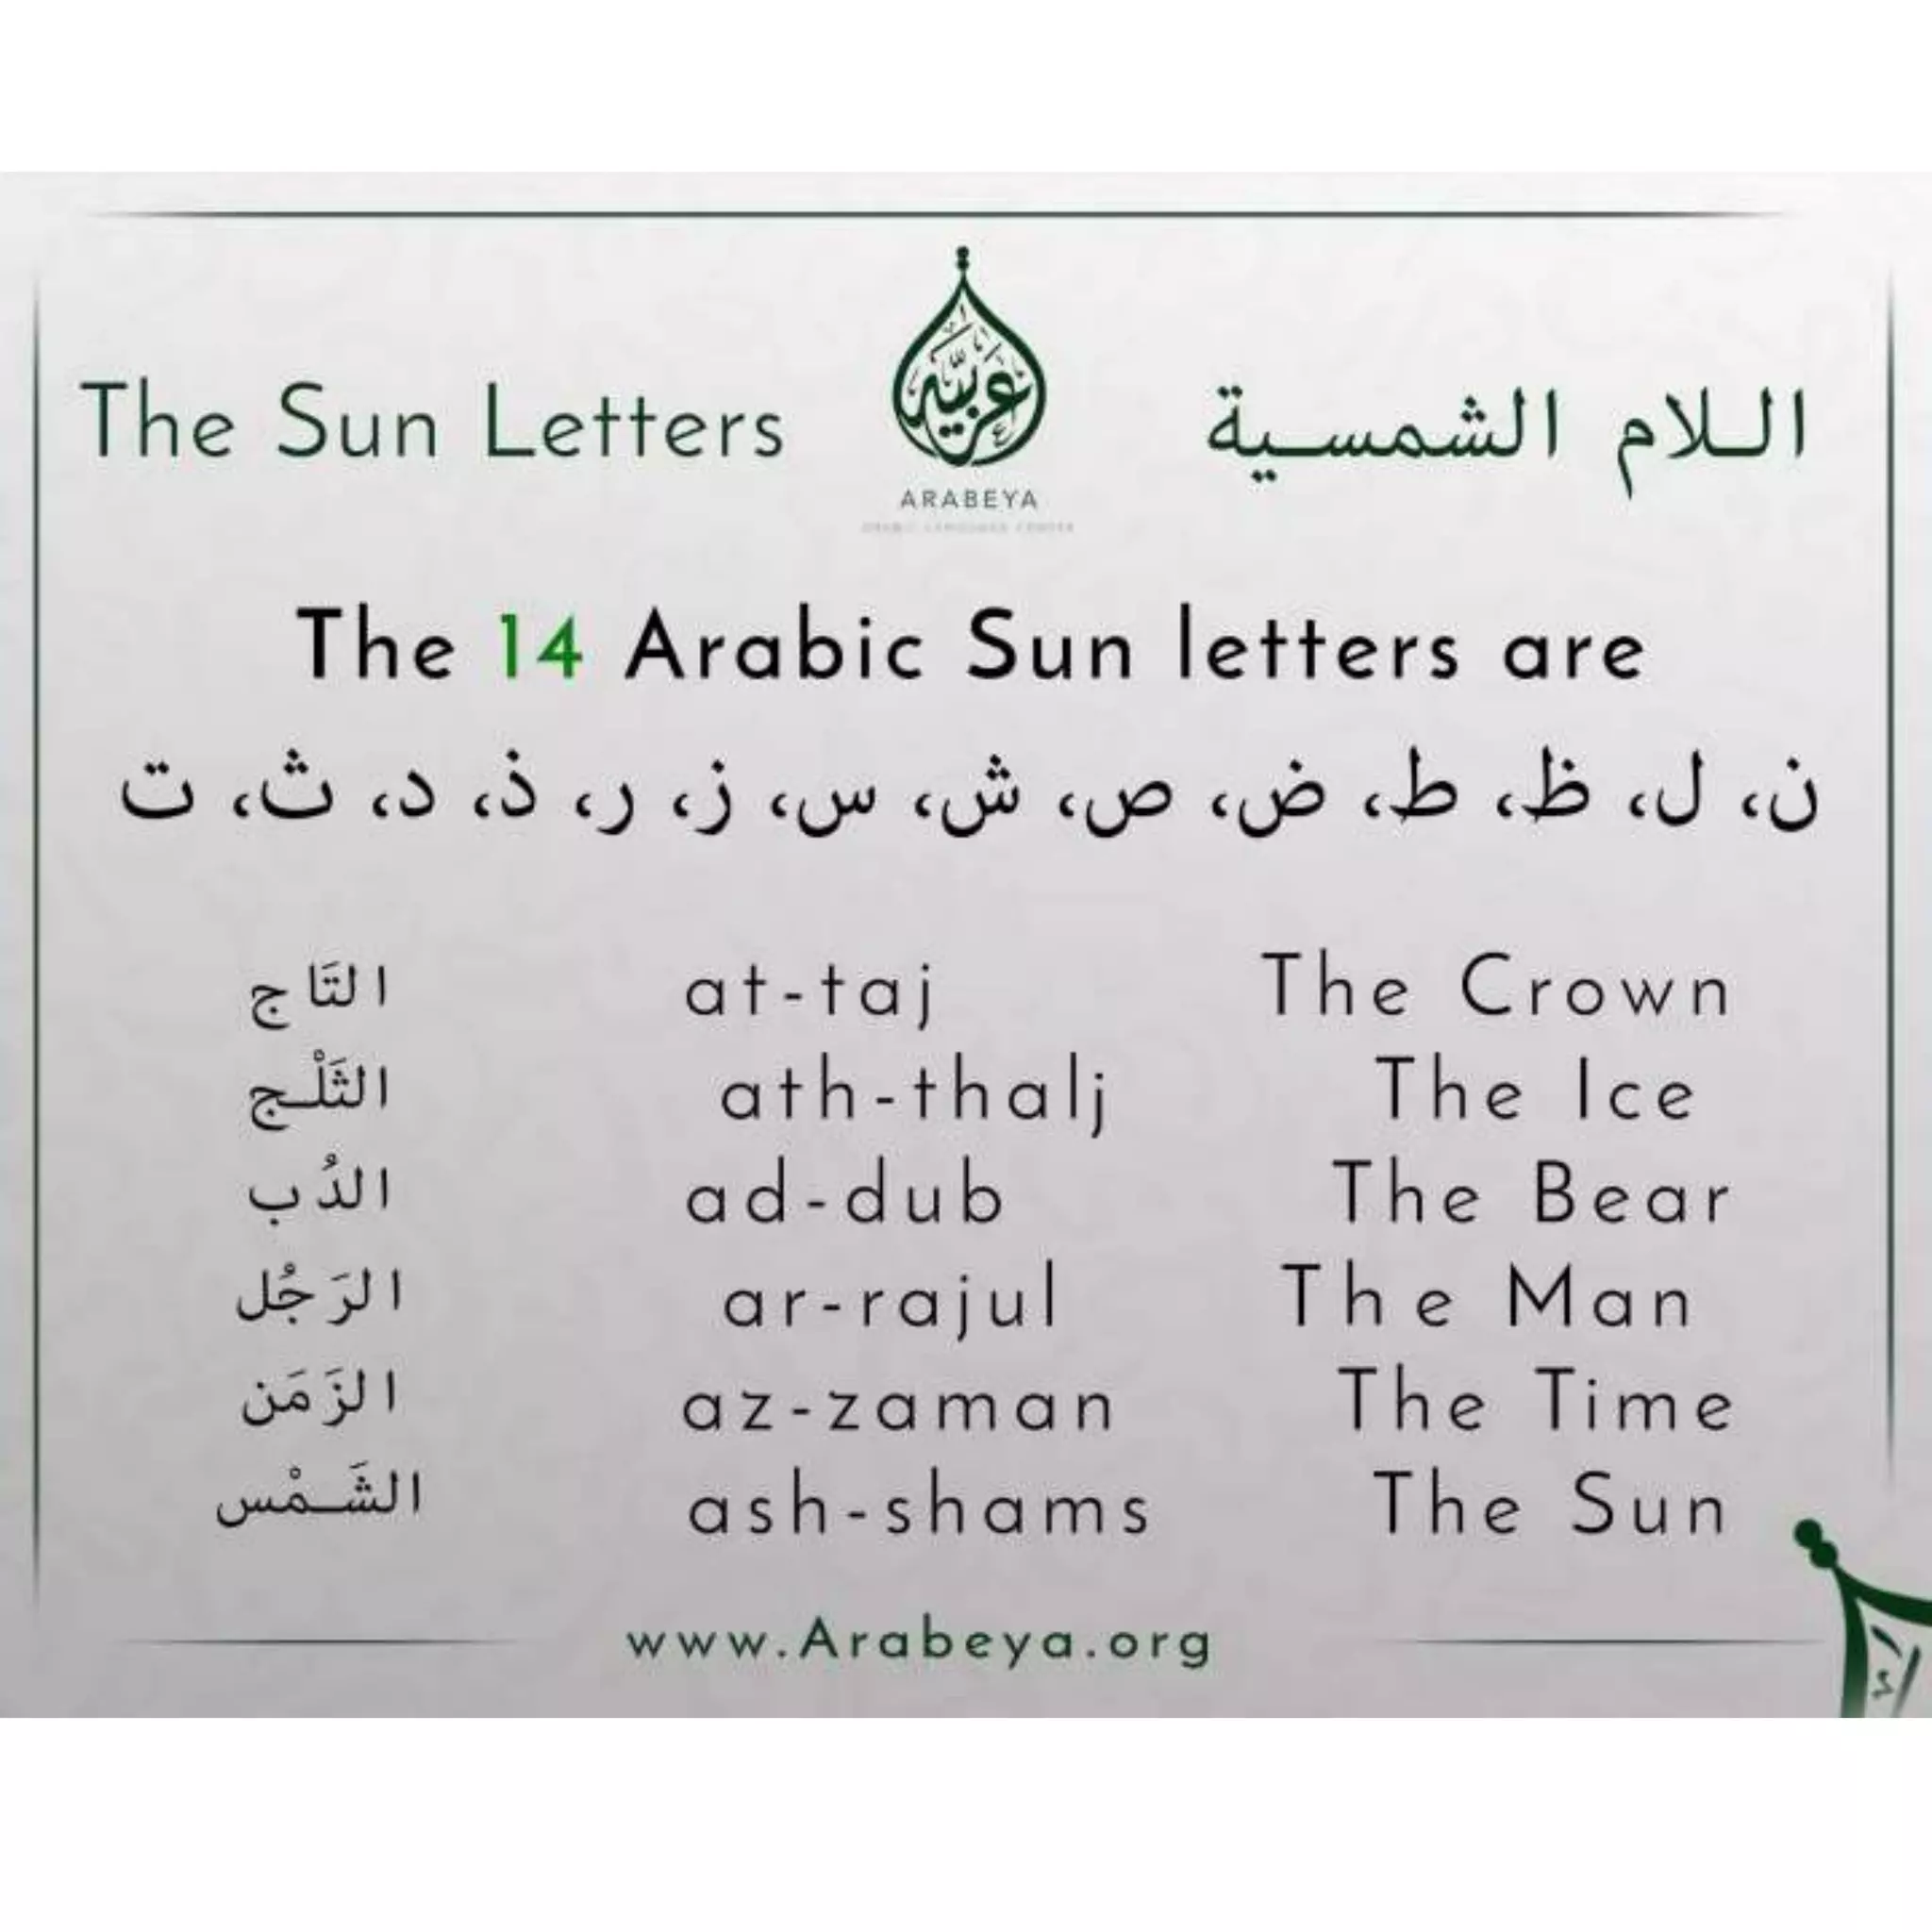 The Sun Letters
عربية
ARABEYA
اللام الشمسية
The 14 Arabic Sun letters are
ن، ل، ظ، ط، ض، ص، ش، س، ز، ر، ذ، د، ث، ت
التَاج at-taj The Crown
الثَلْج ath-thalj The Ice
الدُب ad-dub The Bear
الرَجُل ar-rajul The Man
الزَمَن az-zaman The Time
الشَمْس ash-shams The Sun
www.Arabeya.org